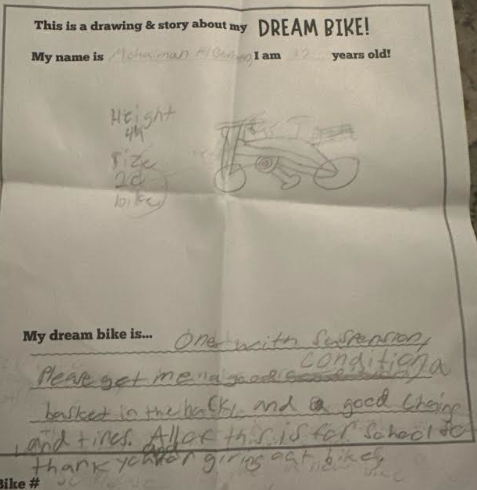 This is a drawing & story about my DREAM BIKE!
My name is I am 12 years old!
Height
4M
Size
20
bike
My dream bike is... One with Suspension,
Please get me a good condition, a
basket in the back, and a good Chaine
and tires. All of this is for School so
thank you for giving out bikes
Bike #